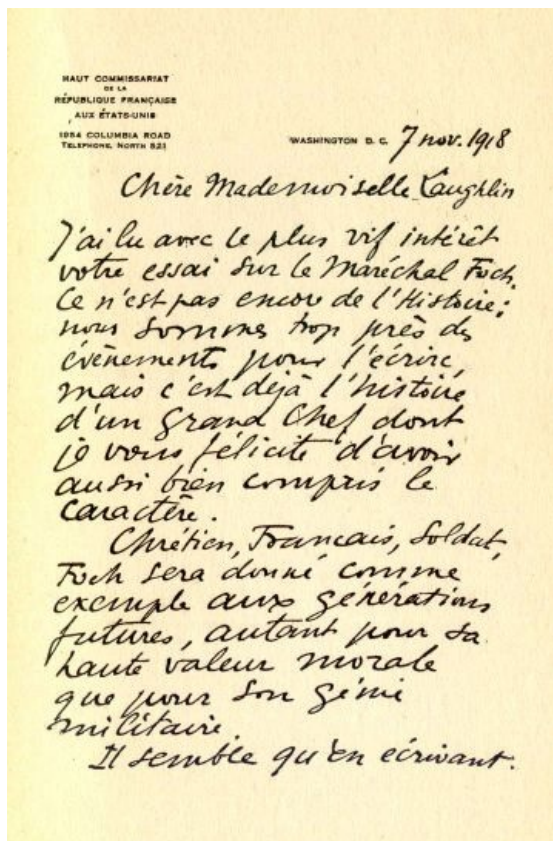 HAUT COMMISSARIAT
DE LA
RÉPUBLIQUE FRANÇAISE
AUX ÉTATS-UNIS
1954 COLUMBIA ROAD
TELEPHONE, NORTH 821
WASHINGTON D. C. 7 nov. 1918
Chère Mademoiselle Laughlin
J'ai lu avec le plus vif intérêt
votre essai sur le Maréchal Foch.
Ce n'est pas encore de l'Histoire;
nous sommes trop près des
évènements pour l'écrire,
mais c'est déjà l'histoire
d'un Grand Chef dont
je vous félicite d'avoir
aussi bien compris le
caractère.
Chrétien, Francais, Soldat,
Foch sera donné comme
exemple aux générations
futures, autant pour sa
haute valeur morale
que pour son génie
militaire.
Il semble qu'en ecrivant.